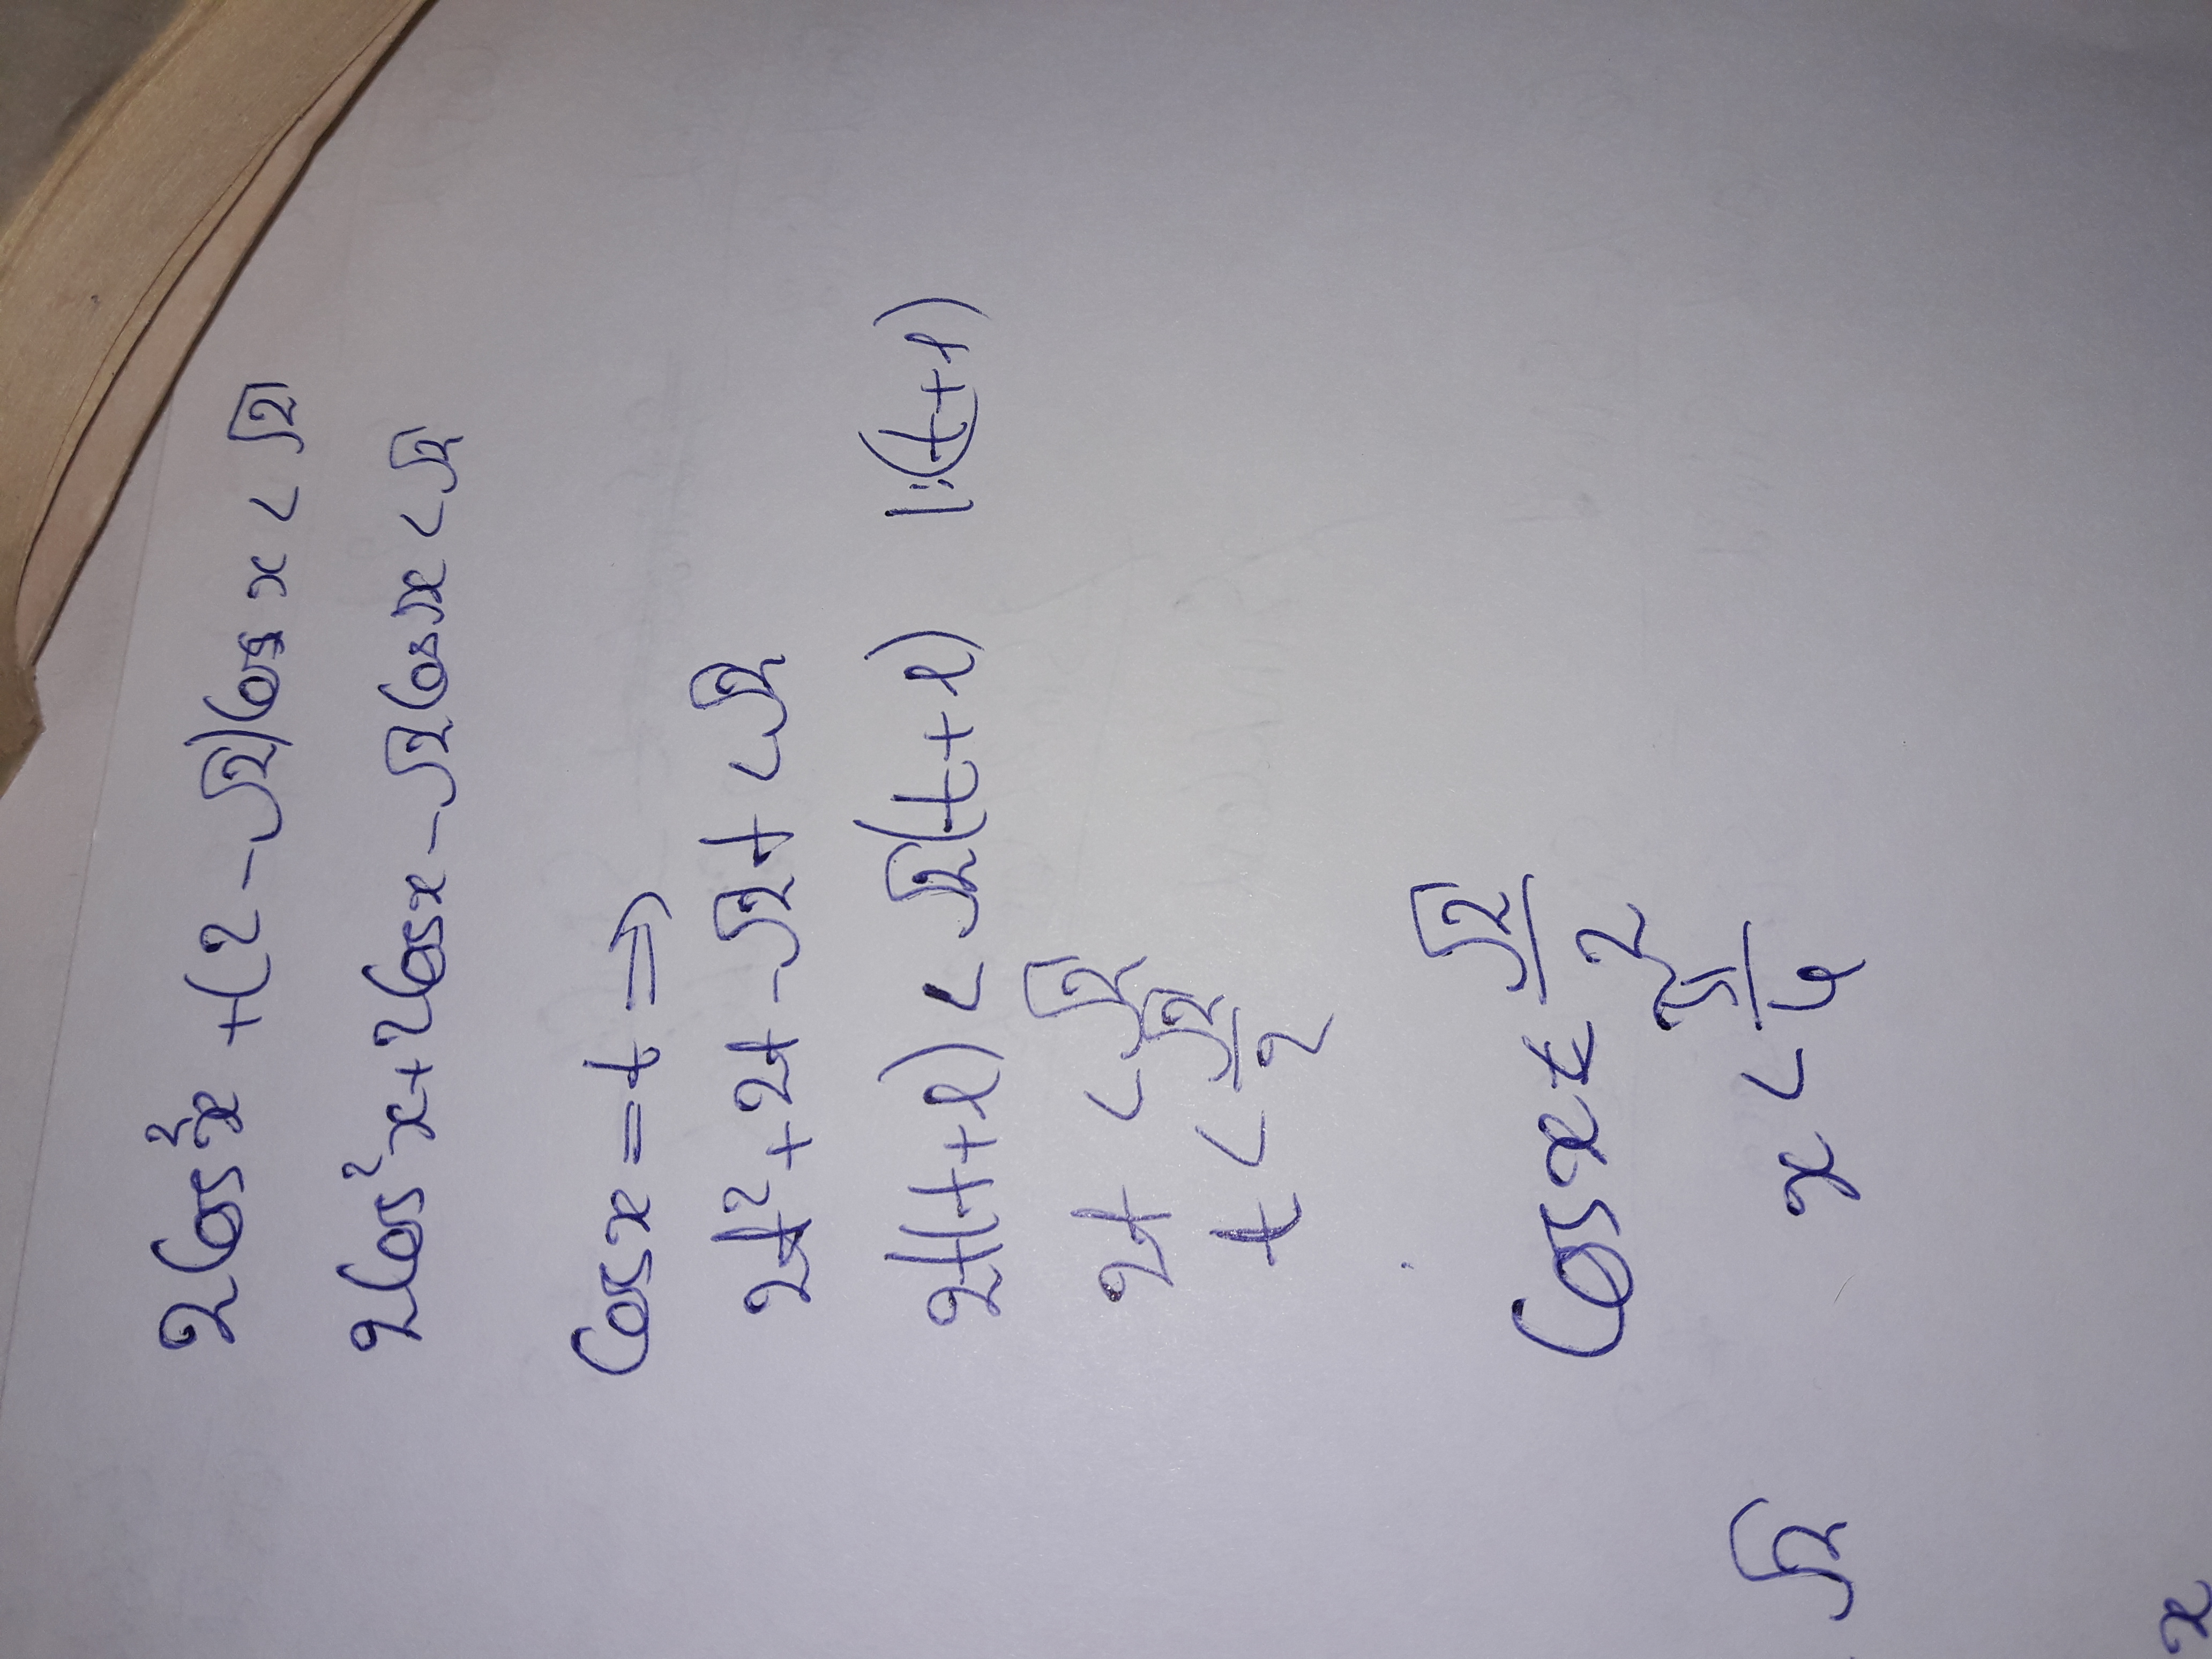 2cos²x + (2 - √2)cos x < √2
2cos²x + 2cosx - √2cosx < √2
cosx = t ⇒
2t² + 2t - √2t < √2
2t(t+1) < √2(t+1) |:(t+1)
2t < √2
t < √2/2
cosx < √2/2
x < π/4
√2
x